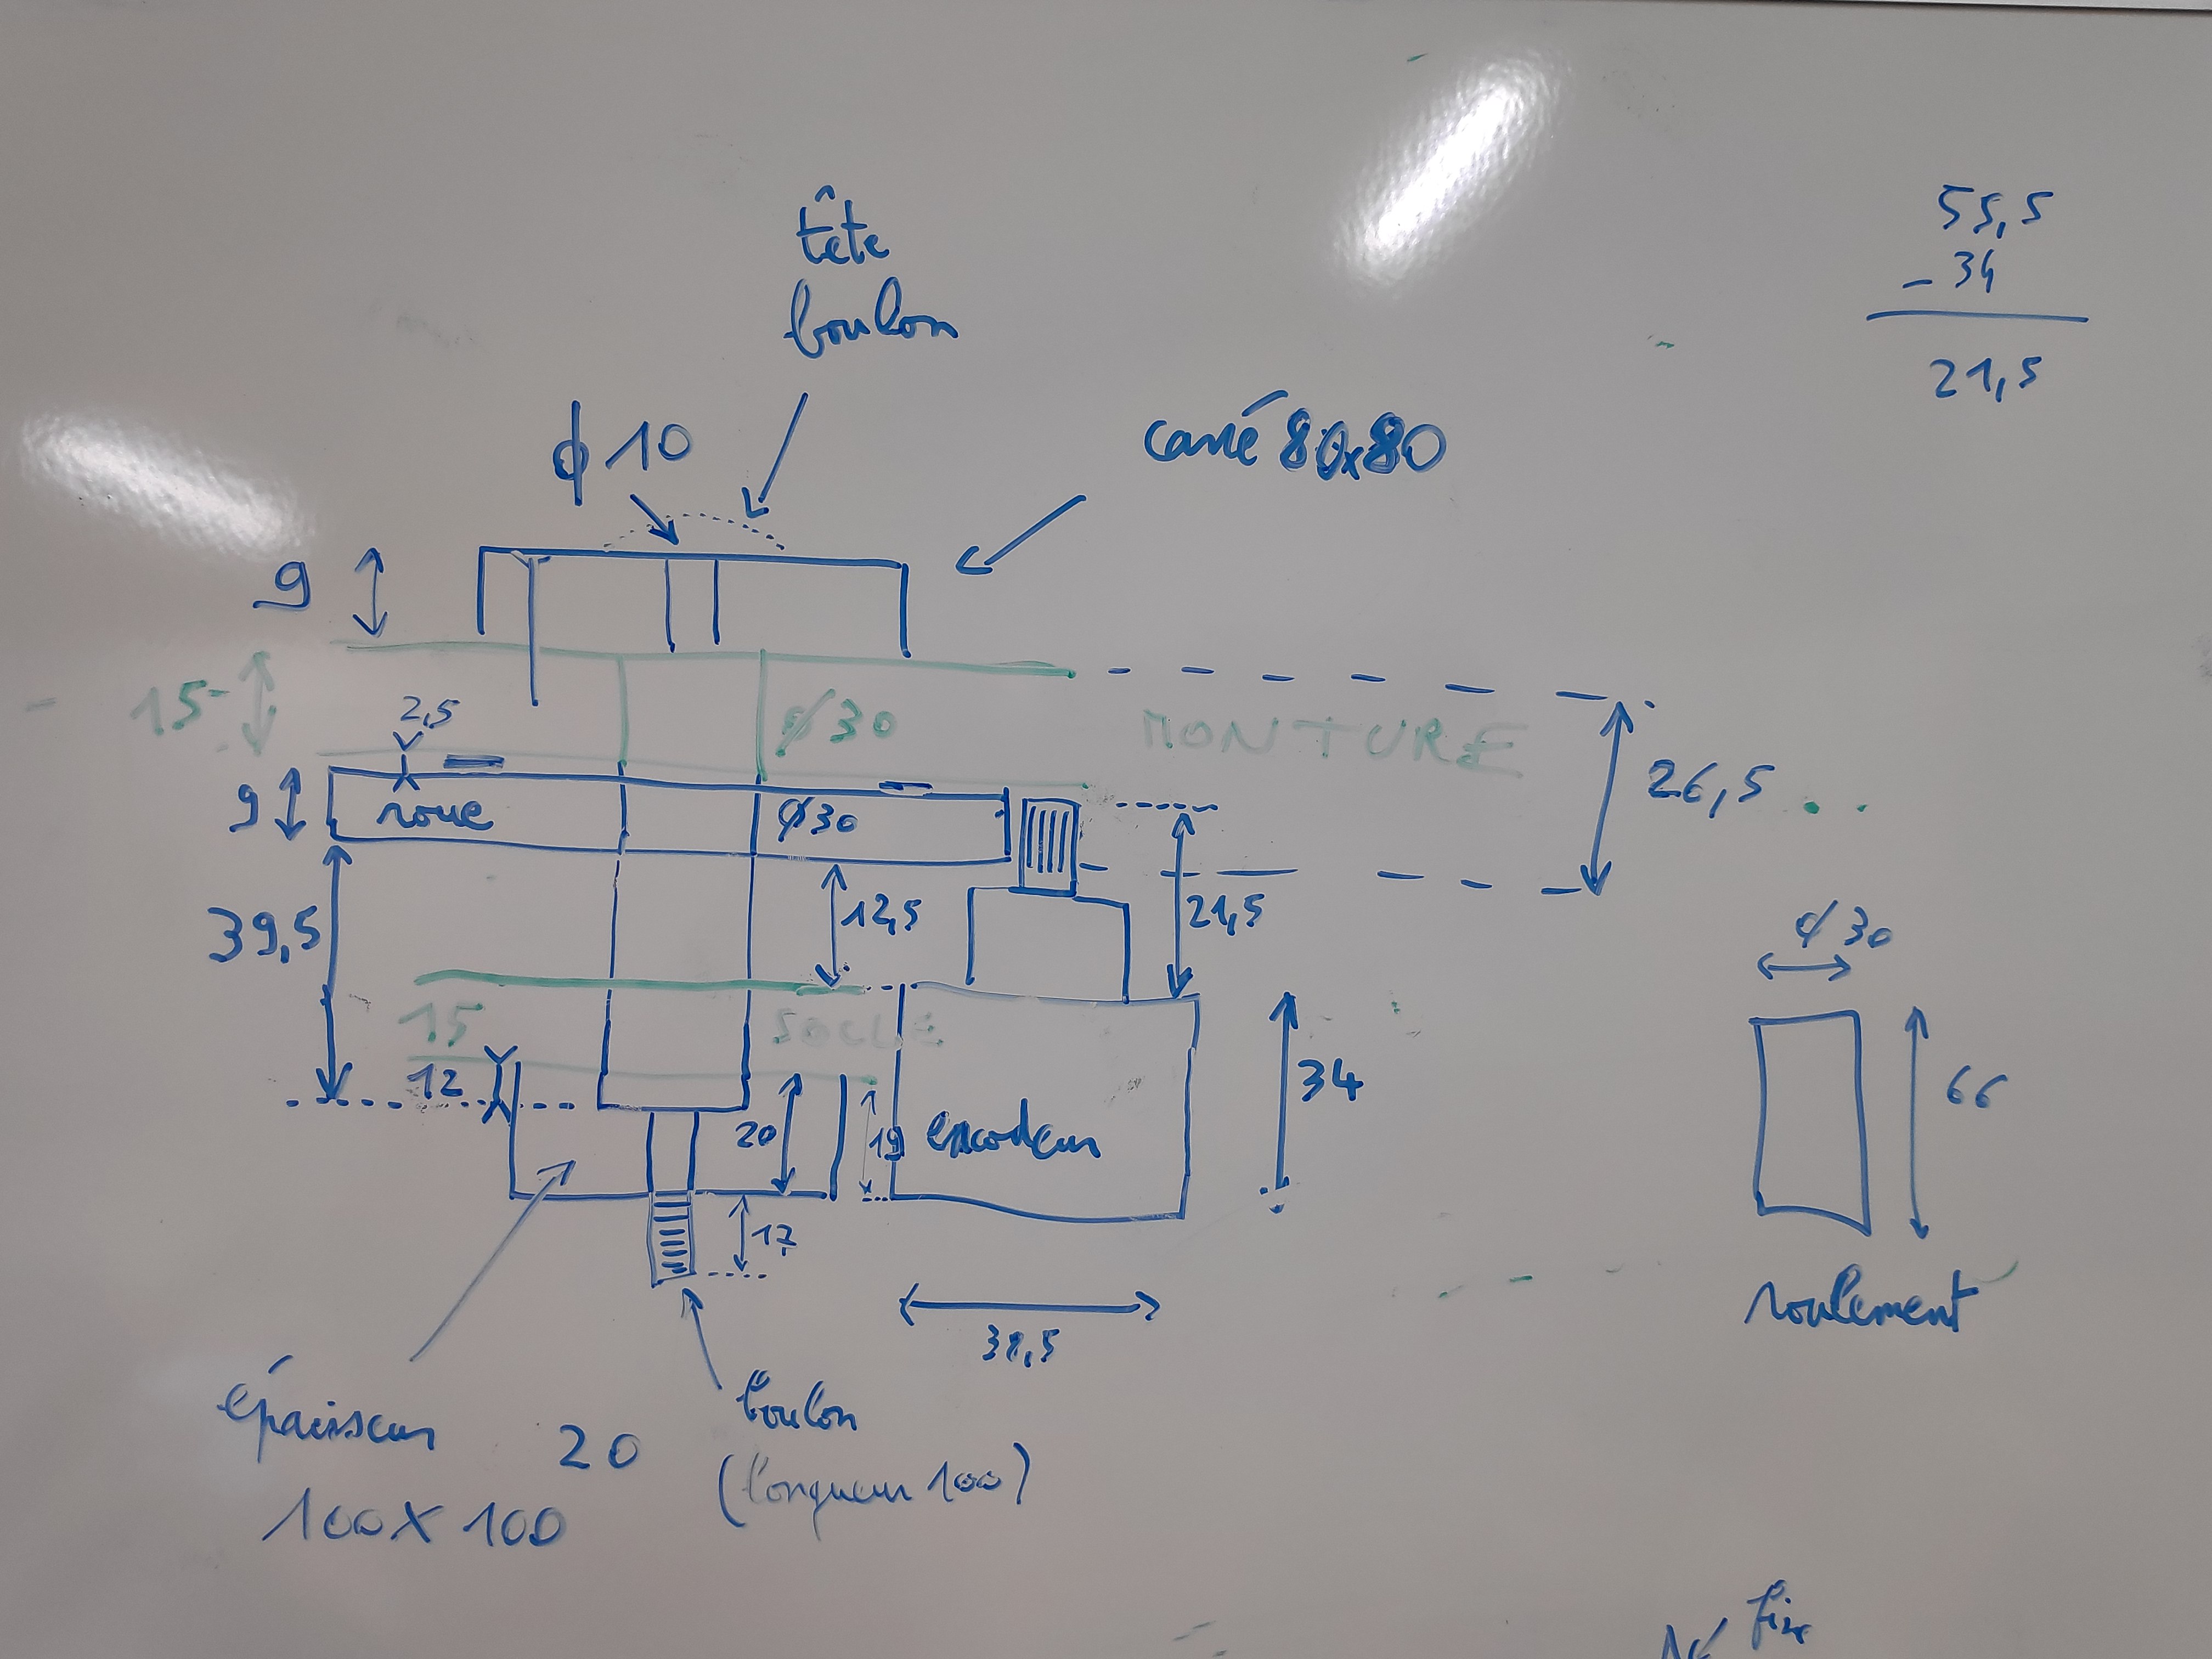 tête
boulon
55,5
- 34
21,5
ϕ 10
carré 80x80
9
15
2,5
ϕ30
MONTURE
26,5
9
roue
ϕ30
39,5
12,5
21,5
ϕ30
15
SOCLE
12
34
66
20
19
encodeur
17
roulement
38,5
épaisseur 20
100 X 100
boulon
(longueur 100)
fix